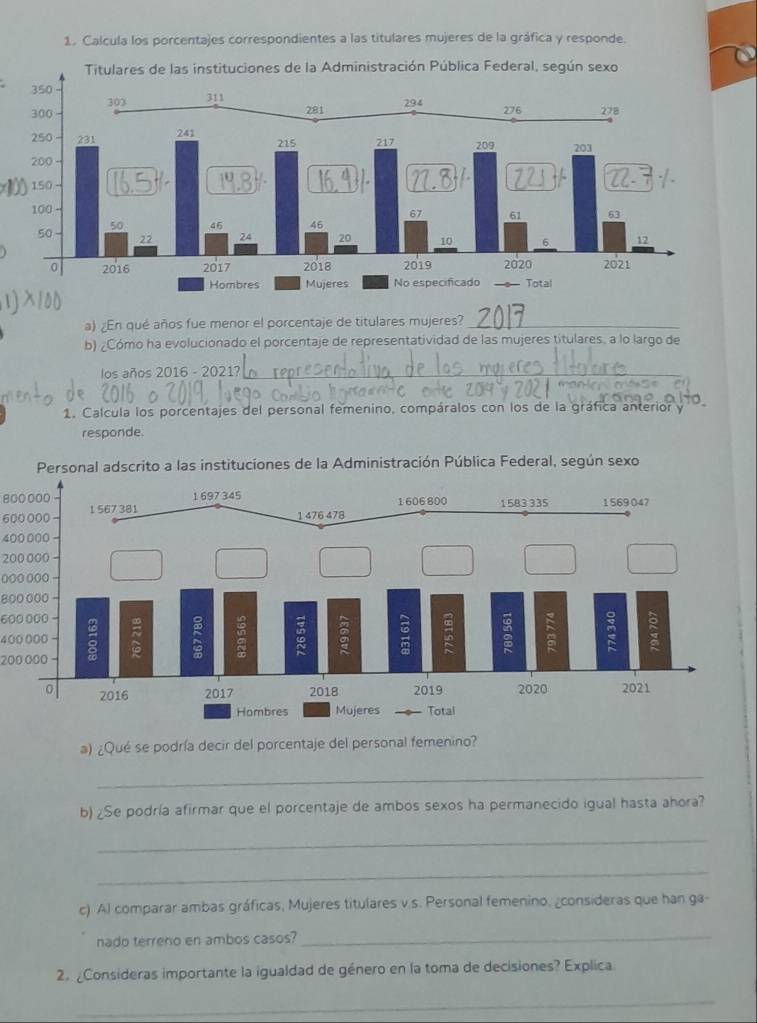 1. Calcula los porcentajes correspondientes a las titulares mujeres de la gráfica y responde.
Titulares de las instituciones de la Administración Pública Federal, según sexo
350
300
250
200
150
100
50
0
303 311 281 294 276 278
231 241 215 217 209 203
x100 16.5% 14.8% 16.4% 22.8% 22.1% 22.7%
50 46 46 67 61 63
22 24 20 10 6 12
2016 2017 2018 2019 2020 2021
Hombres Mujeres No especificado Total
1) x100
a) ¿En qué años fue menor el porcentaje de titulares mujeres? 2017
b) ¿Cómo ha evolucionado el porcentaje de representatividad de las mujeres titulares, a lo largo de
los años 2016 - 2021? la representativa de las mujeres titulares
mento de 2016 a 2019, luego cambio entre 2019 y 2021 en
un rango alto.
1. Calcula los porcentajes del personal femenino, compáralos con los de la gráfica anterior y
responde.
Personal adscrito a las instituciones de la Administración Pública Federal, según sexo
800 000
600 000
400 000
200 000
000 000
800 000
600 000
400 000
200 000
0
1 567 381 1 697 345 1 476 478 1 606 800 1 583 335 1 569 047
800 163 767 218 867 780 829 565 726 541 749 937 831 617 775 183 789 561 793 774 774 340 794 707
2016 2017 2018 2019 2020 2021
Hombres Mujeres Total
a) ¿Qué se podría decir del porcentaje del personal femenino?
b) ¿Se podría afirmar que el porcentaje de ambos sexos ha permanecido igual hasta ahora?
c) Al comparar ambas gráficas, Mujeres titulares v.s. Personal femenino, ¿consideras que han ga-
nado terreno en ambos casos?
2. ¿Consideras importante la igualdad de género en la toma de decisiones? Explica